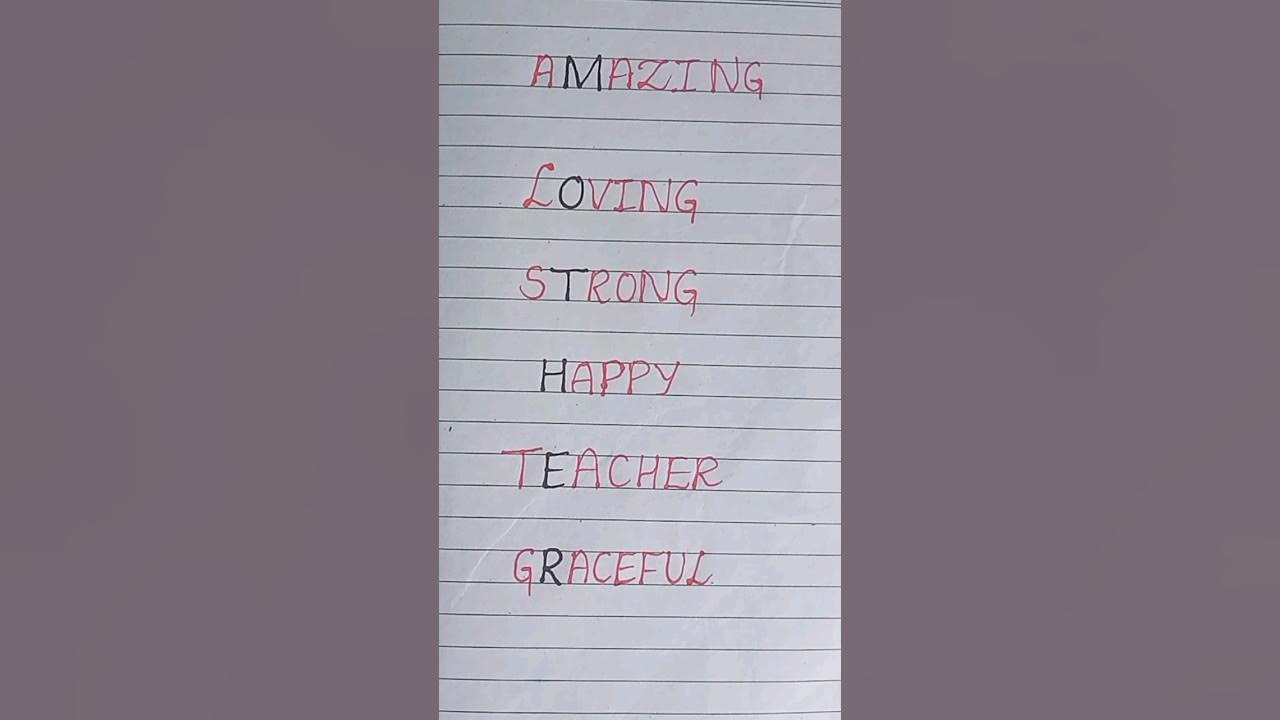 AMAZING
LOVING
STRONG
HAPPY
TEACHER
GRACEFUL